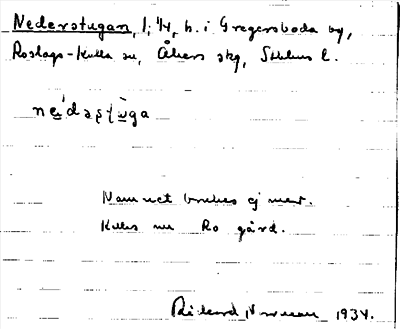 Nederstugan, 1; 1/4, h. i Gregersboda by,
Roslags-Kulla sn, Åkers skg, Sthlms l.
Namnet brukes ej mer.
Kallas nu Ro gård.
Rikard 1934.